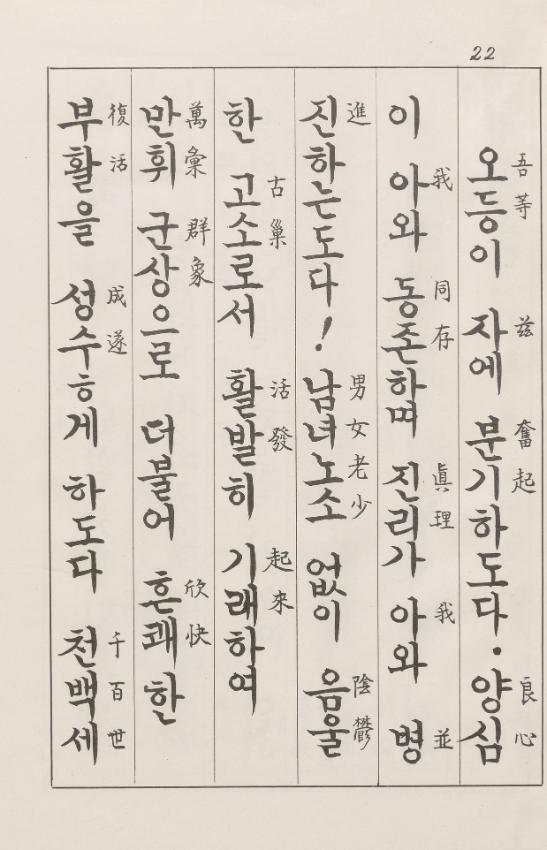 22
오등이 자에 분기하도다. 양심
吾等 玆 奮起 良心
이 아와 동존하며 진리가 아와 병
我 同存 眞理 我 並
진하는도다! 남녀노소 없이 음울
進 男女老少 陰鬱
한 고소로서 활발히 기래하여
古巢 活發 起來
만휘 군상으로 더불어 흔쾌한
萬彙 群象 欣快
부활을 성수ㅎ게 하도다 천백세
復活 成遂 千百世